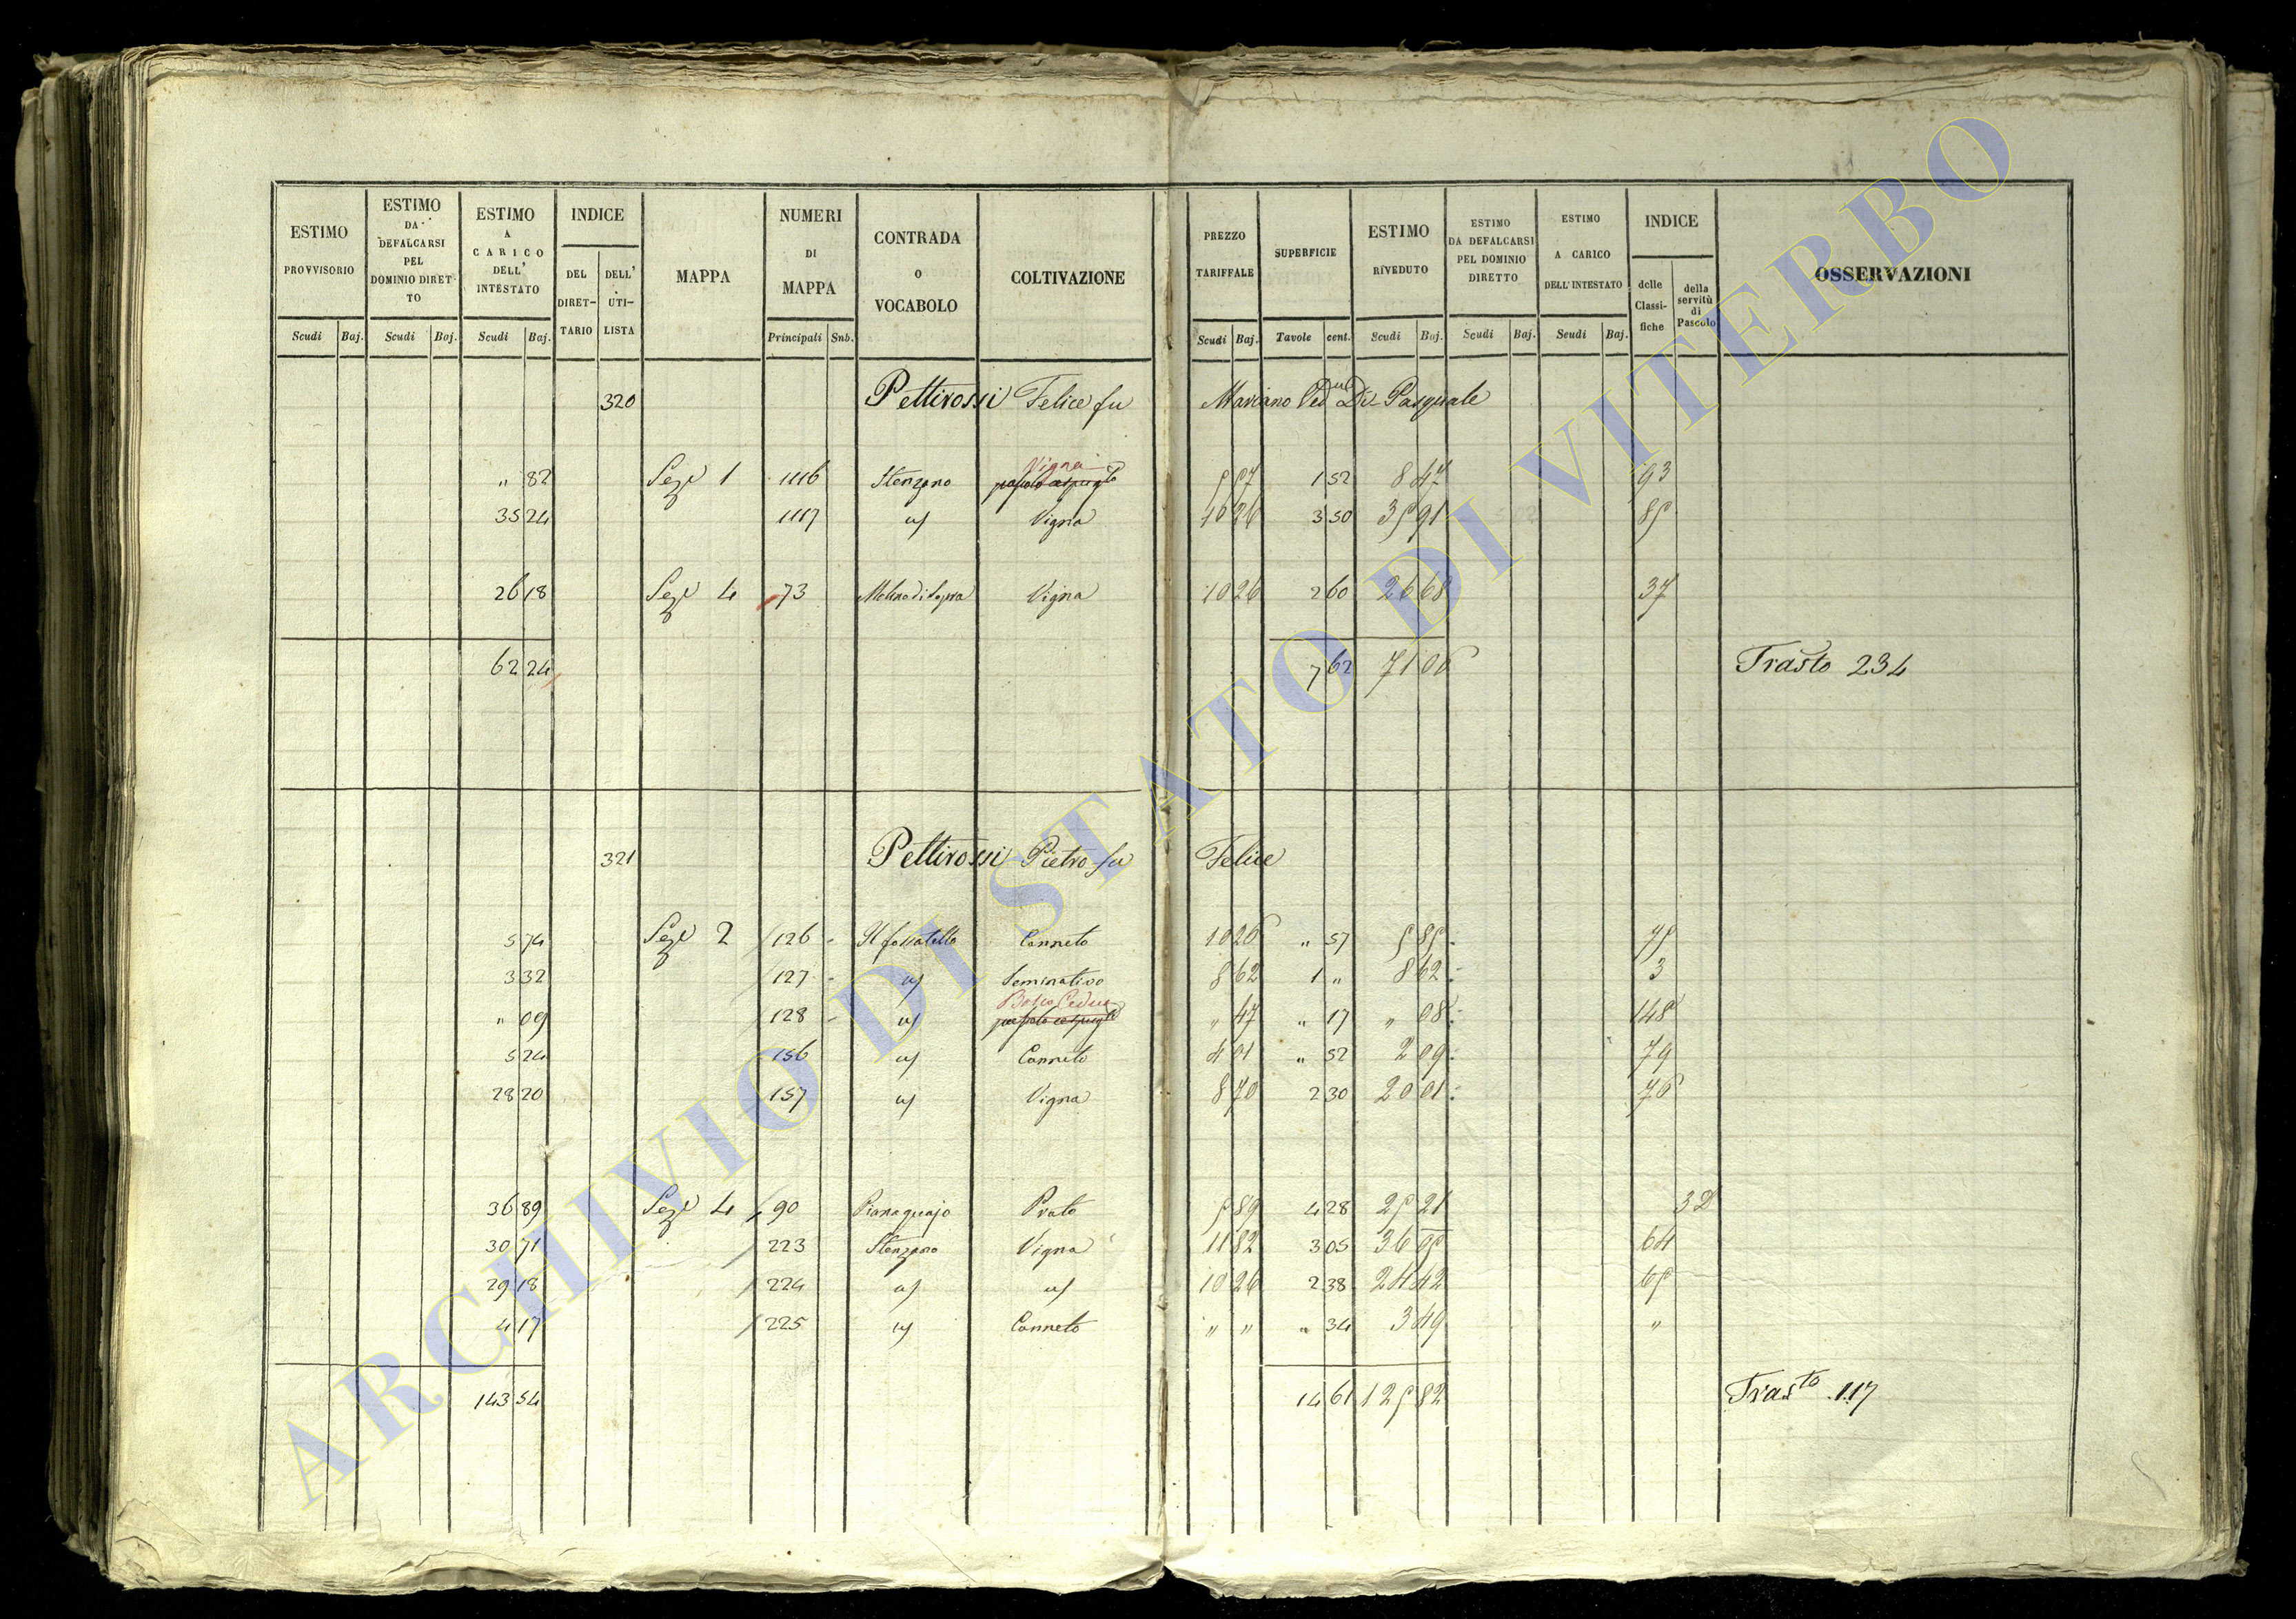 ESTIMO PROVVISORIO | ESTIMO DA DEFALCARSI PEL DOMINIO DIRET-TO | ESTIMO A CARICO DELL' INTESTATO | INDICE | MAPPA | NUMERI DI MAPPA | CONTRADA O VOCABOLO | COLTIVAZIONE | PREZZO TARIFFALE | SUPERFICIE | ESTIMO RIVEDUTO | ESTIMO DA DEFALCARSI PEL DOMINIO DIRETTO | ESTIMO A CARICO DELL' INTESTATO | INDICE | OSSERVAZIONI
DEL DIRET-TARIO | DELL' UTI-LISTA | delle Classi-fiche | della servitù di Pascolo
Scudi | Baj. | Scudi | Baj. | Scudi | Baj. | Principali | Snb. | Scudi | Baj. | Tavole | cent. | Scudi | Baj. | Scudi | Baj. | Scudi | Baj.
320 Pettirossi Felice fu Mariano Di Pasquale
" 82 Sez.e 1 1116 Stenzano Vigna 5 57 1 52 8 47 93
35 24 1117 u/ Vigna 10 26 3 50 35 91 85
26 18 Sez.e 4 73 Vigna 10 26 2 60 26 68 37
62 24 7 62 71 06 Trasto 234
321 Pettirossi Pietro fu Felice
5 74 Sez.e 2 126 Il fossatello Canneto 10 26 " 57 5 85 75
3 32 127 u/ Seminativo 8 62 1 " 8 62 3
" 09 128 u/ Bosco Ceduo " 47 " 17 " 08 148
5 24 156 u/ Canneto 4 01 " 52 2 09 79
28 20 157 u/ Vigna 8 70 2 30 20 01 76
36 89 Sez.e 4 90 Pianaquajo Prato 5 89 4 28 25 21 32
30 71 223 Stenzano Vigna 11 82 3 05 36 05 64
29 18 224 u/ u/ 10 26 2 38 24 42 65
4 17 225 u/ Canneto " " " 34 3 49 "
143 54 14 61 125 82 Trasto 117
ARCHIVIO DI STATO DI VITERBO